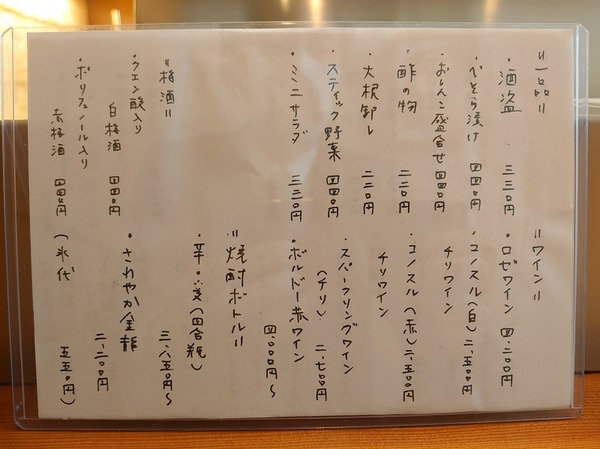 〃一品〃
・酒盗 三三〇円
・べそら漬け 四四〇円
・おしんこ盛合せ 四四〇円
・酢の物 二二〇円
・大根卸し 二二〇円
・スティック野菜 四四〇円
・ミニサラダ 三三〇円
〃梅酒〃
・クエン酸入り
白梅酒 四四〇円
・ポリフェノール入り
赤梅酒 四四〇円
〃ワイン〃
・ロゼワイン 四、二〇〇円
・コノスル(白)二、五〇〇円
チリワイン
・コノスル(赤)二、五〇〇円
チリワイン
・スパークリングワイン
(チリ) 二、七〇〇円
・ボルドー赤ワイン
四、〇〇〇円〜
〃焼酎ボトル〃
・芋・麦(四合瓶)
三、八五〇円〜
・さわやか金龍
二、二〇〇円
(氷代 五五〇円)